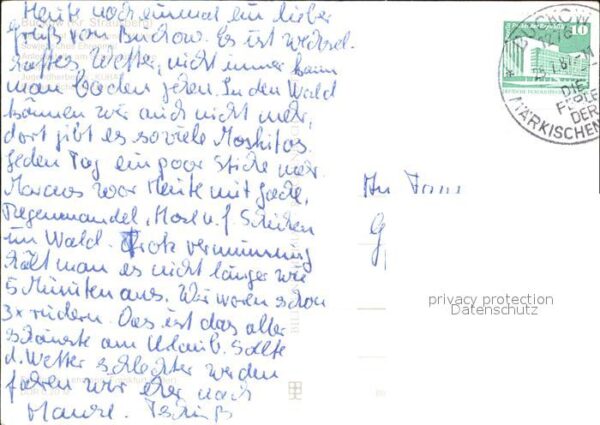 Heute noch einmal ein lieber
Gruß von Buckow. Es ist wechsel-
haftes Wetter, nicht immer kann
man baden gehen. In den Wald
können wir auch nicht mehr,
dort gibt es so viele Moskitos.
Jeden Tag ein paar Stiche mehr.
Marcus war Heute mit Jacke,
Regenmandel, Hose u.
im Wald. Trotz vermumung
hält man es nicht länger wie
5 Minuten aus. Wir waren schon
3x rudern. Das ist das aller
schönste am Urlaub. Sollte
d. Wetter schlechter werden
fahren wir eher nach
Hause. Tschüß
An Frau
BUCKOW
DIE
PERLE
DER
MÄRKISCHEN
10
privacy protection
Datenschutz